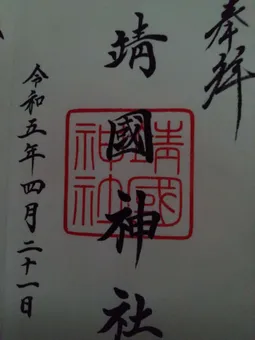 奉拝
靖國神社
靖國神社
令和五年四月二十一日